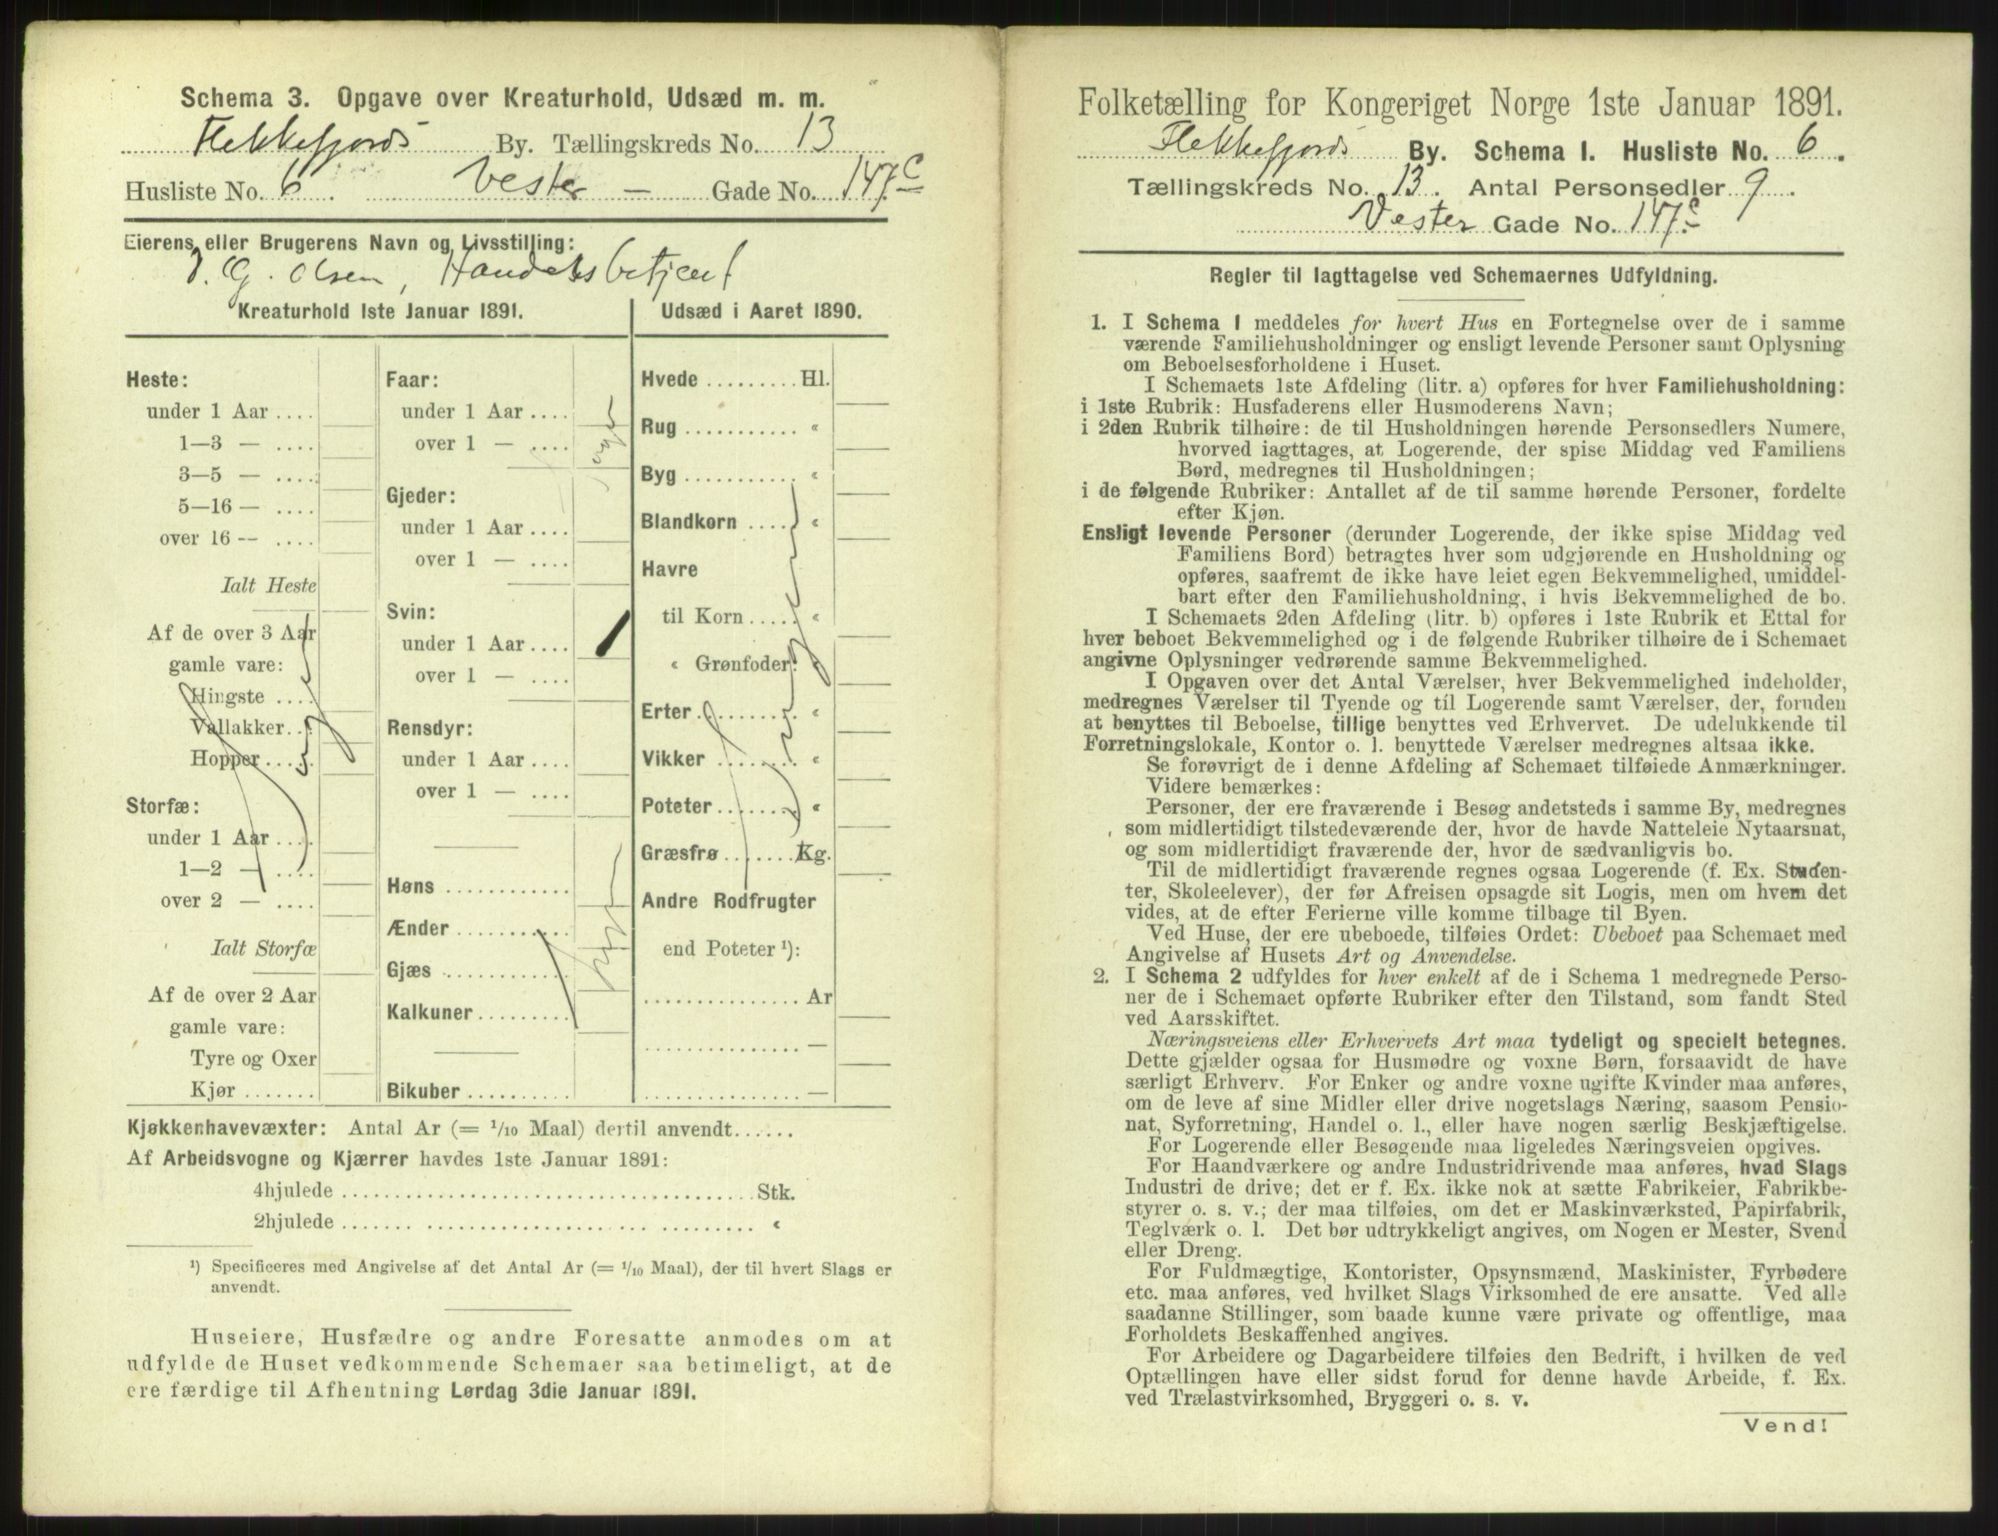 Schema 3. Opgave over Kreaturhold, Udsæd m. m.
Flekkefjords By. Tællingskreds No. 13
Husliste No. 6. Vester — Gade No. 147c
Eierens eller Brugerens Navn og Livsstilling:
J. G. Olsen, Handelsbetjent
Kreaturhold 1ste Januar 1891.
Heste:
under 1 Aar ....
1—3 — ....
3—5 — ....
5—16 — ....
over 16 -- ....
Ialt Heste
Af de over 3 Aar
gamle vare:
Hingste ....
Vallakker...
Hopper.....
Ingen
Storfæ:
under 1 Aar ....
1—2 — ....
over 2 — ....
Ialt Storfæ
Af de over 2 Aar
gamle vare:
Tyre og Oxer
Kjør .......
Faar:
under 1 Aar ....
over 1 — ....
Ingen
Gjeder:
under 1 Aar ....
over 1 — ....
Svin:
under 1 Aar .... 1
over 1 — ....
Rensdyr:
under 1 Aar ....
over 1 — ....
Høns ............
Ænder ...........
Gjæs ............
Kalkuner.........
Ingen
Bikuber ..........
Udsæd i Aaret 1890.
Hvede .......... Hl.
Rug ............ «
Byg ............ «
Blandkorn ..... «
Havre
til Korn ..... «
« Grønfoder. «
Erter .......... «
Vikker ......... «
Poteter ........ «
Græsfrø ....... Kg.
Ingen
Andre Rodfrugter
end Poteter ¹):
................ Ar
................ —
................ —
Kjøkkenhavevæxter: Antal Ar (= 1/10 Maal) dertil anvendt......
Af Arbeidsvogne og Kjærrer havdes 1ste Januar 1891:
4hjulede ........................................ Stk.
2hjulede ........................................ «
¹) Specificeres med Angivelse af det Antal Ar (= 1/10 Maal), der til hvert Slags er
anvendt.
Huseiere, Husfædre og andre Foresatte anmodes om at
udfylde de Huset vedkommende Schemaer saa betimeligt, at de
ere færdige til Afhentning Lørdag 3die Januar 1891.
Folketælling for Kongeriget Norge 1ste Januar 1891.
Flekkefjords By. Schema I. Husliste No. 6.
Tællingskreds No. 13. Antal Personsedler 9.
Vester Gade No. 147c
Regler til Iagttagelse ved Schemaernes Udfyldning.
1. I Schema I meddeles for hvert Hus en Fortegnelse over de i samme
værende Familiehusholdninger og ensligt levende Personer samt Oplysning
om Beboelsesforholdene i Huset.
I Schemaets 1ste Afdeling (litr. a) opføres for hver Familiehusholdning:
i 1ste Rubrik: Husfaderens eller Husmoderens Navn;
i 2den Rubrik tilhøire: de til Husholdningen hørende Personsedlers Numere,
hvorved iagttages, at Logerende, der spise Middag ved Familiens
Bord, medregnes til Husholdningen;
i de følgende Rubriker: Antallet af de til samme hørende Personer, fordelte
efter Kjøn.
Ensligt levende Personer (derunder Logerende, der ikke spise Middag ved
Familiens Bord) betragtes hver som udgjørende en Husholdning og
opføres, saafremt de ikke have leiet egen Bekvemmelighed, umiddel-
bart efter den Familiehusholdning, i hvis Bekvemmelighed de bo.
I Schemaets 2den Afdeling (litr. b) opføres i 1ste Rubrik et Ettal for
hver beboet Bekvemmelighed og i de følgende Rubriker tilhøire de i Schemaet
angivne Oplysninger vedrørende samme Bekvemmelighed.
I Opgaven over det Antal Værelser, hver Bekvemmelighed indeholder,
medregnes Værelser til Tyende og til Logerende samt Værelser, der, foruden
at benyttes til Beboelse, tillige benyttes ved Erhvervet. De udelukkende til
Forretningslokale, Kontor o. l. benyttede Værelser medregnes altsaa ikke.
Se forøvrigt de i denne Afdeling af Schemaet tilføiede Anmærkninger.
Videre bemærkes:
Personer, der ere fraværende i Besøg andetsteds i samme By, medregnes
som midlertidigt tilstedeværende der, hvor de havde Natteleie Nytaarsnat,
og som midlertidigt fraværende der, hvor de sædvanligvis bo.
Til de midlertidigt fraværende regnes ogsaa Logerende (f. Ex. Studen-
ter, Skoleelever), der før Afreisen opsagde sit Logis, men om hvem det
vides, at de efter Ferierne ville komme tilbage til Byen.
Ved Huse, der ere ubeboede, tilføies Ordet: Ubeboet paa Schemaet med
Angivelse af Husets Art og Anvendelse.
2. I Schema 2 udfyldes for hver enkelt af de i Schema 1 medregnede Perso-
ner de i Schemaet opførte Rubriker efter den Tilstand, som fandt Sted
ved Aarsskiftet.
Næringsveiens eller Erhvervets Art maa tydeligt og specielt betegnes.
Dette gjælder ogsaa for Husmødre og voxne Børn, forsaavidt de have
særligt Erhverv. For Enker og andre voxne ugifte Kvinder maa anføres,
om de leve af sine Midler eller drive nogetslags Næring, saasom Pensio-
nat, Syforretning, Handel o. l., eller have nogen særlig Beskjæftigelse.
For Logerende eller Besøgende maa ligeledes Næringsveien opgives.
For Haandværkere og andre Industridrivende maa anføres, hvad Slags
Industri de drive; det er f. Ex. ikke nok at sætte Fabrikeier, Fabrikbe-
styrer o. s. v.; der maa tilføies, om det er Maskinværksted, Papirfabrik,
Teglværk o. l. Det bør udtrykkeligt angives, om Nogen er Mester, Svend
eller Dreng.
For Fuldmægtige, Kontorister, Opsynsmænd, Maskinister, Fyrbødere
etc. maa anføres, ved hvilket Slags Virksomhed de ere ansatte. Ved alle
saadanne Stillinger, som baade kunne være private og offentlige, maa
Forholdets Beskaffenhed angives.
For Arbeidere og Dagarbeidere tilføies den Bedrift, i hvilken de ved
Optællingen have eller sidst forud for denne havde Arbeide, f. Ex.
ved Trælastvirksomhed, Bryggeri o. s. v.
Vend!